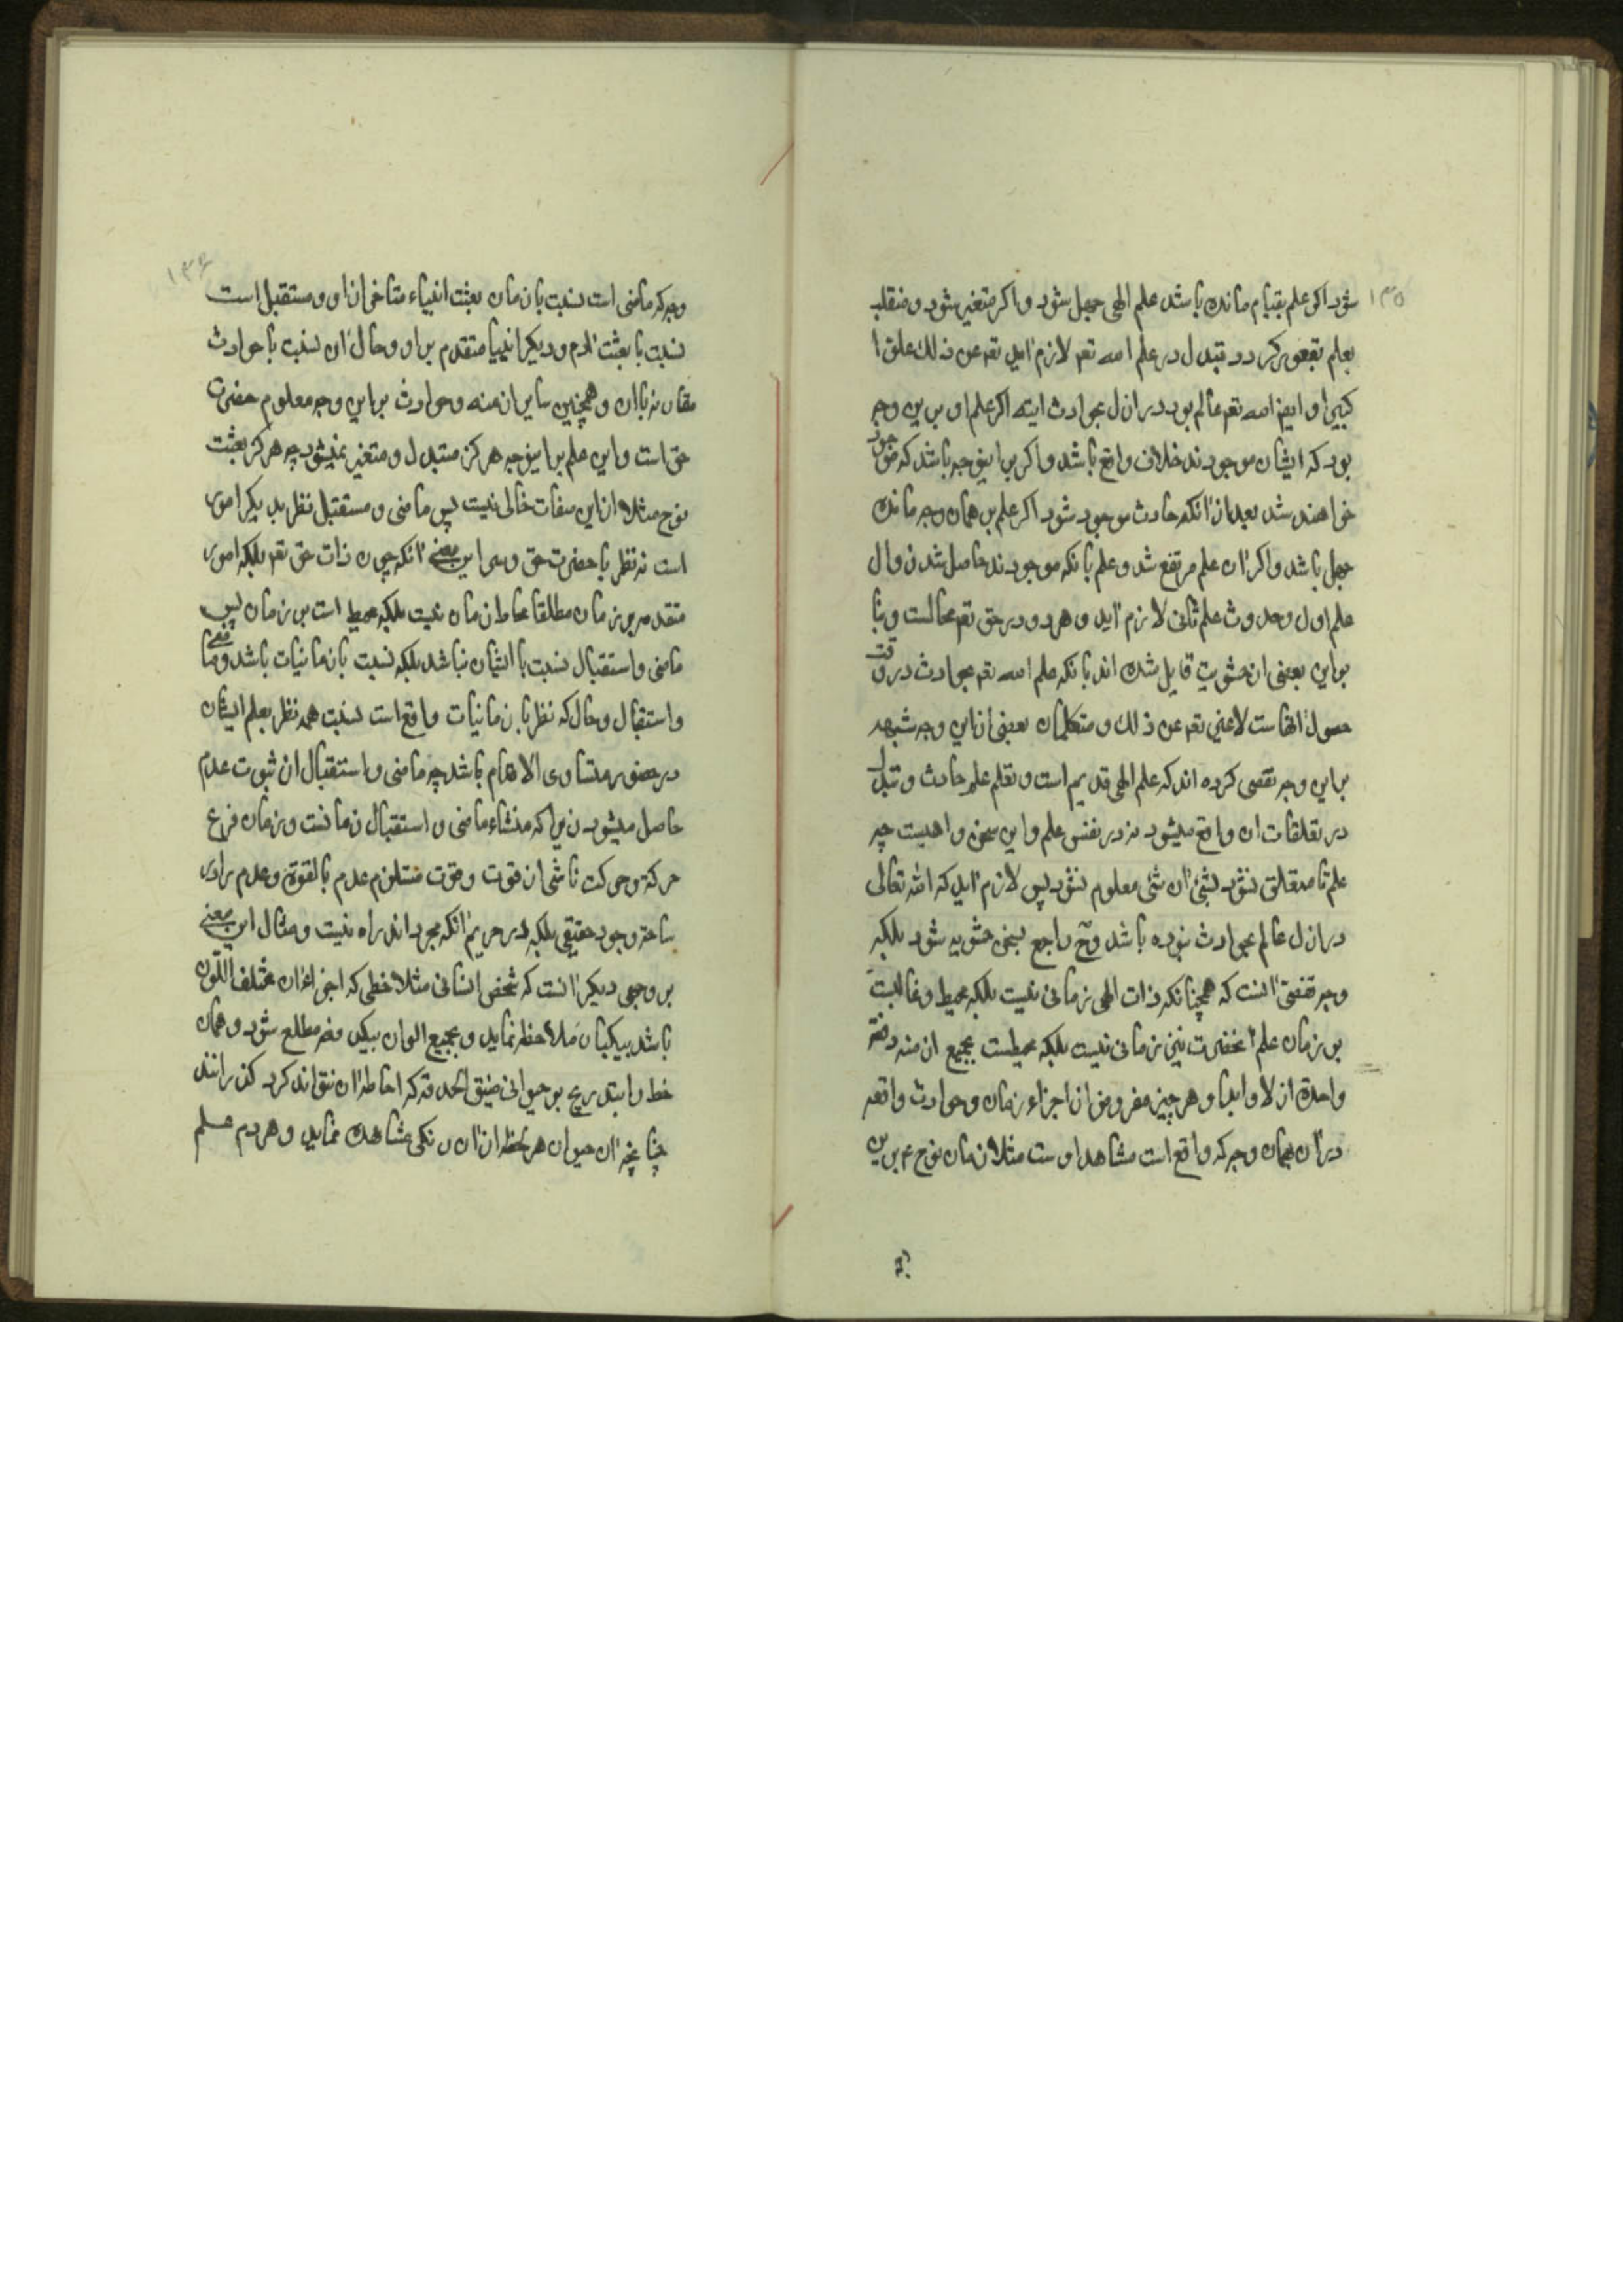 ۱۳۵
شود اکر علم بقیام مانده باشد علم الهی جهل شود و اکر متغیر شود و منقلب
بعلم بقعود کردد تبدل در علم الله تعه لازم اید تعه عن ذلک علوا
کبیرا و ایضا الله تعه عالم بود در ازل بحوادث اتیه اکر علم او برین وجه
بود که ایشان موجودند خلاف واقع باشد و اکر بر اینوجه باشد که موجود
خواهند شد بعد از انکه حادث موجود شود اکر علم بر همان وجه مانده
جهل باشد و اکر ان علم مرتفع شد و علم بانکه موجودند حاصل شد زوال
علم اول و حدوث علم ثانی لازم اید و هر دو در حق تعه محالست و بنا
براین بعضی از حشویه قایل شده اند بانکه علم الله تعه بحوادث در وقت
حصول انهاست لاغیر تعه عن ذلک و متکلمان بعضی ازاین وجه شبهه
براین وجه تفصی کرده اند که علم الهی قدیم است و تعلق علم حادث و تبدل
در تعلقات ان واقع میشود نه در نفس علم و این سخن واهیست چه
علم تا متعلق نشود بشئ ان شئ معلوم نشود پس لازم اید که الله تعالی
در ازل عالم بحوادث نبوده باشد وح راجع بسخن حشویه شود بلکه
وجه تفصی انست که همچنانکه ذات الهی زمانی نیست بلکه محیط و غالبست
بر زمان علم انحضرت نیز زمانی نیست بلکه محیطست بجمیع ازمنه دفعة
واحدة ازلا و ابدا و هر چیز مفروض از اجزاء زمان و حوادث واقعه
دران بهمان وجه که واقع است مشاهد اوست مثلا زمان نوح ع برین
۱۳۶
وجه که ماضی است نسبت بازمان بعثت انبیاء متاخر از او و مستقبل است
نسبت با بعثت ادم و دیکر انبیا متقدم بر او و حال ان نسبت با حوادث
مقارنه باان و همچنین سایر ازمنه و حوادث براین وجه معلوم حضرت
حق است و این علم بر اینوجه هرکز متبدل و متغیر نمیشود چه هرکز بعثت
نوح مثلا ازاین صفات خالی نیست پس ماضی و مستقبل نظر بدیکر امور
است نه نظر با حضرت حق و سر این معنی انکه چون ذات حق تعه بلکه امور
متقدمه بر زمان مطلقا محاط زمان نیست بلکه محیط است بر زمان پس
ماضی و استقبال نسبت با ایشان نباشد بلکه نسبت بازمانیات باشد و ماضی
و استقبال و حال که نظر بازمانیات واقع است نسبت همه نظر بعلم ایشان
در حضور متساوی الاقدام باشد چه ماضی و استقبال از ثبوت عدم
حاصل میشود زیرا که منشاء ماضی و استقبال زمانست و زمان فرع
حرکة و حرکت ناشی از قوت و قوت مستلزم عدم بالقوة و عدم را در
ساحة وجود حقیقی بلکه در حریم انکه مجرد اند راه نیست و مثال این معنی
بر وجهی دیکر انست که شخص انسانی مثلا خطی که اجزاء ان مختلف اللون
باشد بیکبار ملاحظه نماید و بجمیع الوان بیکدفعه مطلع شود و همان
خط را بتدریج بر حیوانی ضیق الحدقه که احاطه ان نتواند کرد کذرانند
چنانچه ان حیوان هر لحظه از ان رنکی مشاهده نماید و هر دم علم